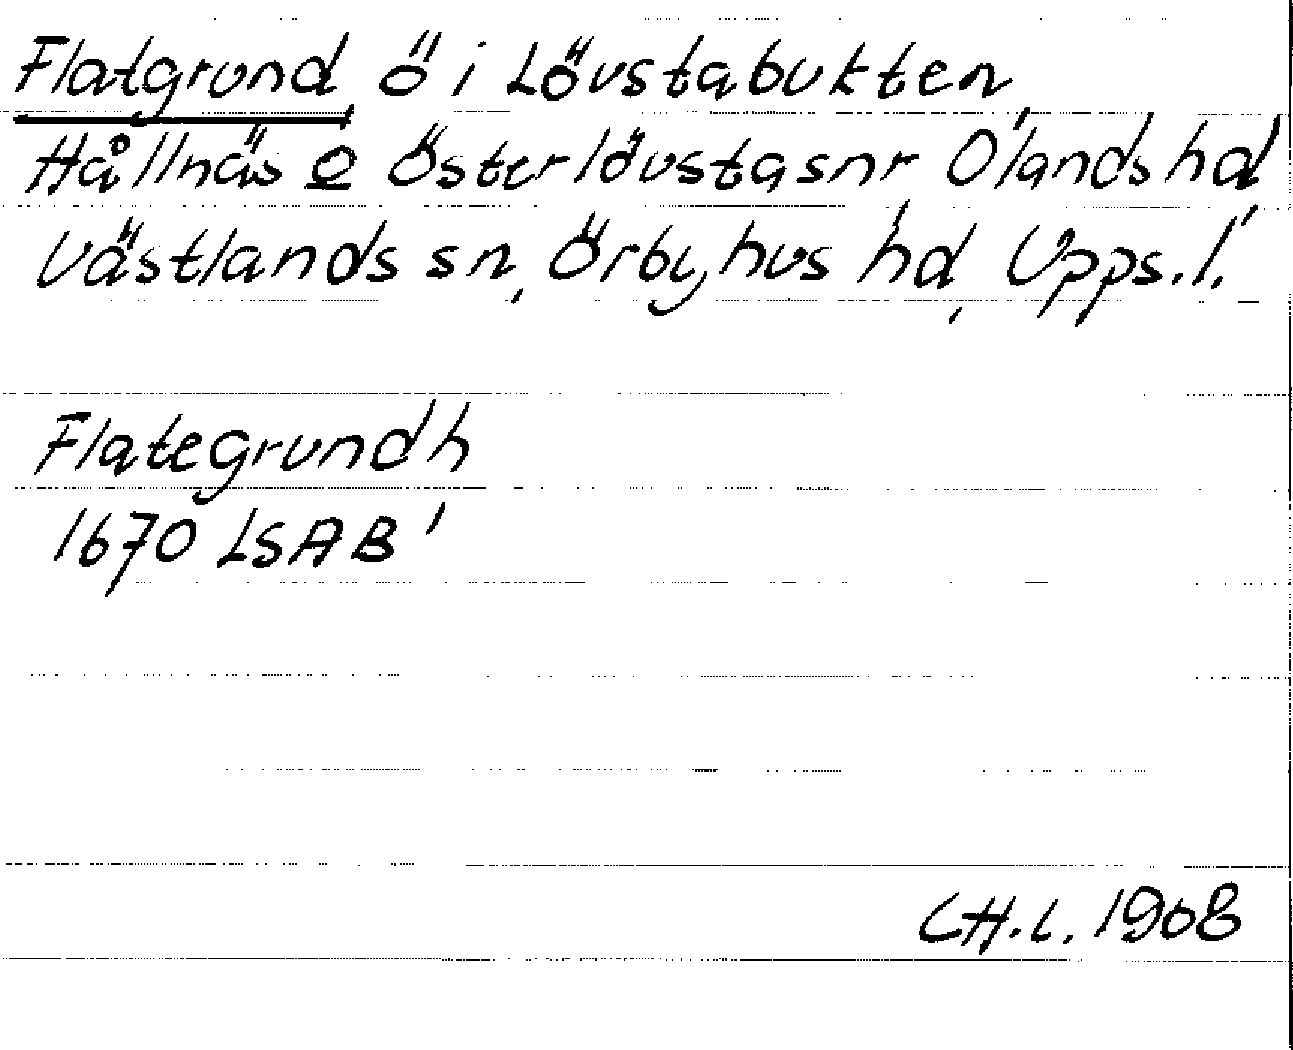 Flatgrund, ö i Lövstabukten,
Hållnäs o Österlövsta snr Olands hd
Västlands sn, Örbyhus hd, Upps. l.
Flategrundh
1670 LSAB'
C.H.L. 1968